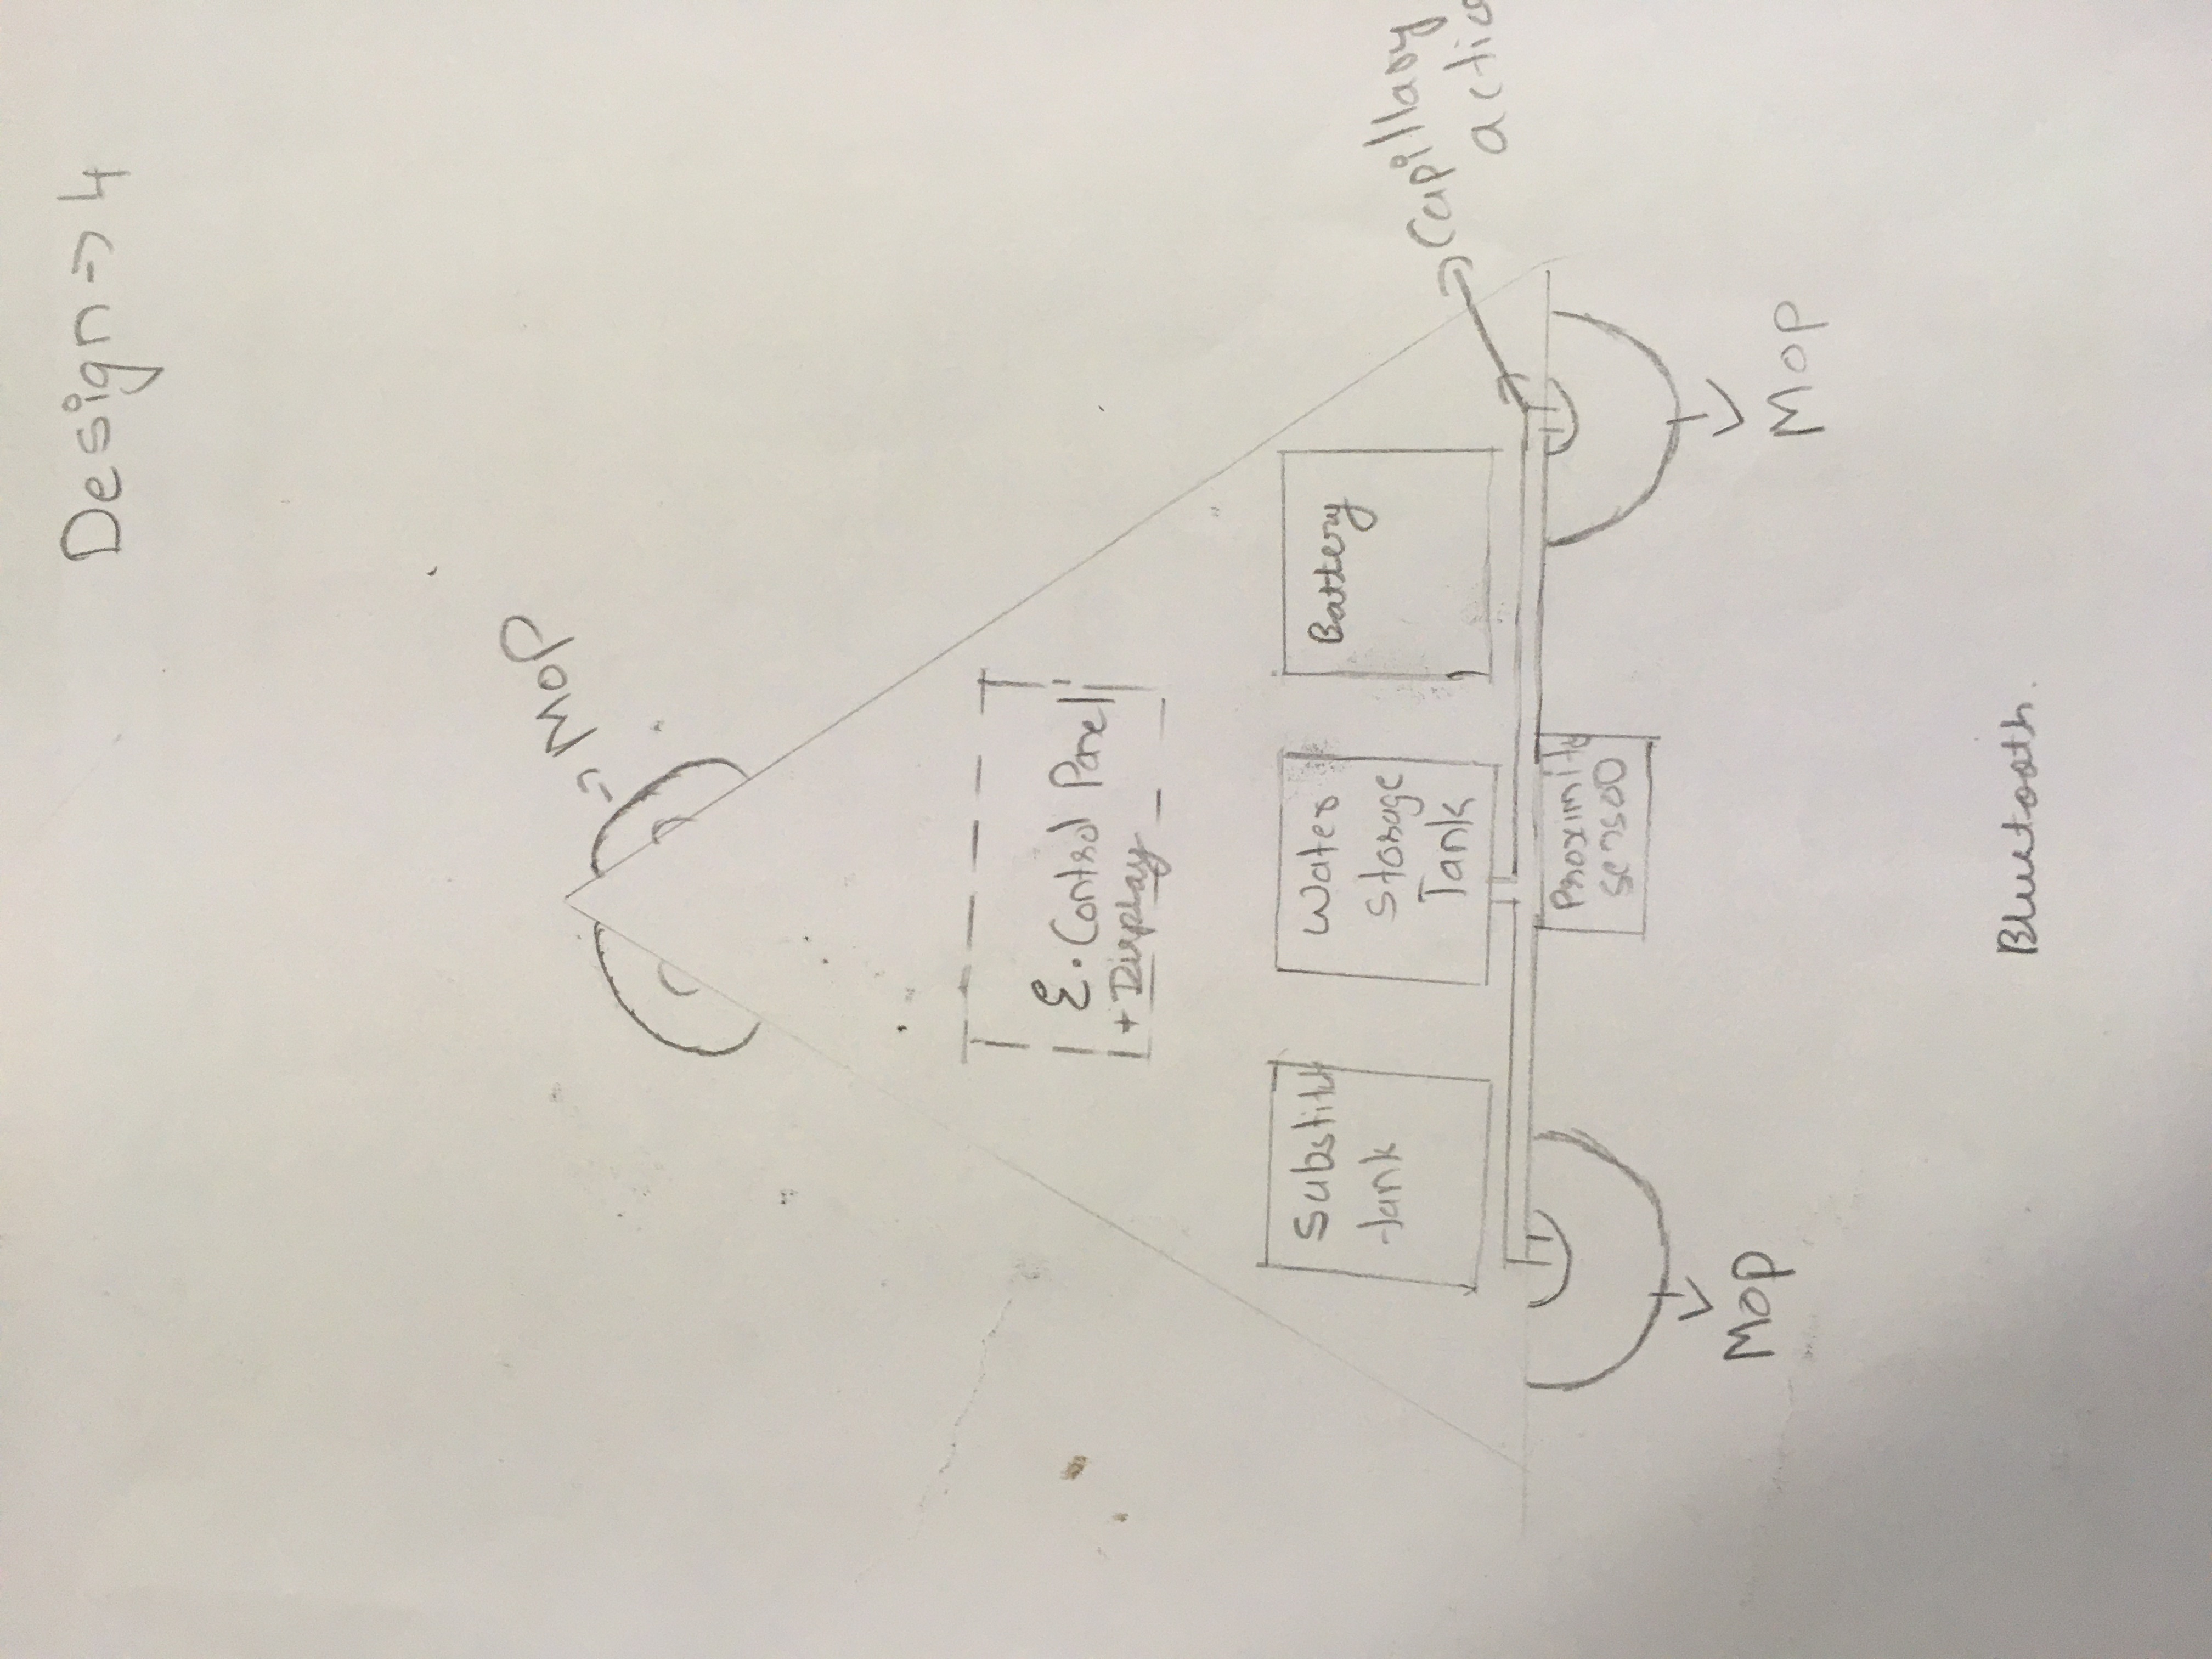 Design → 4
→ MOP
E. Control Panel
+ Display
Substitute
tank
Water
Storage
Tank
Battery
→ Capillary
Proximity
sensor
Mop
Mop
Bluetooth.